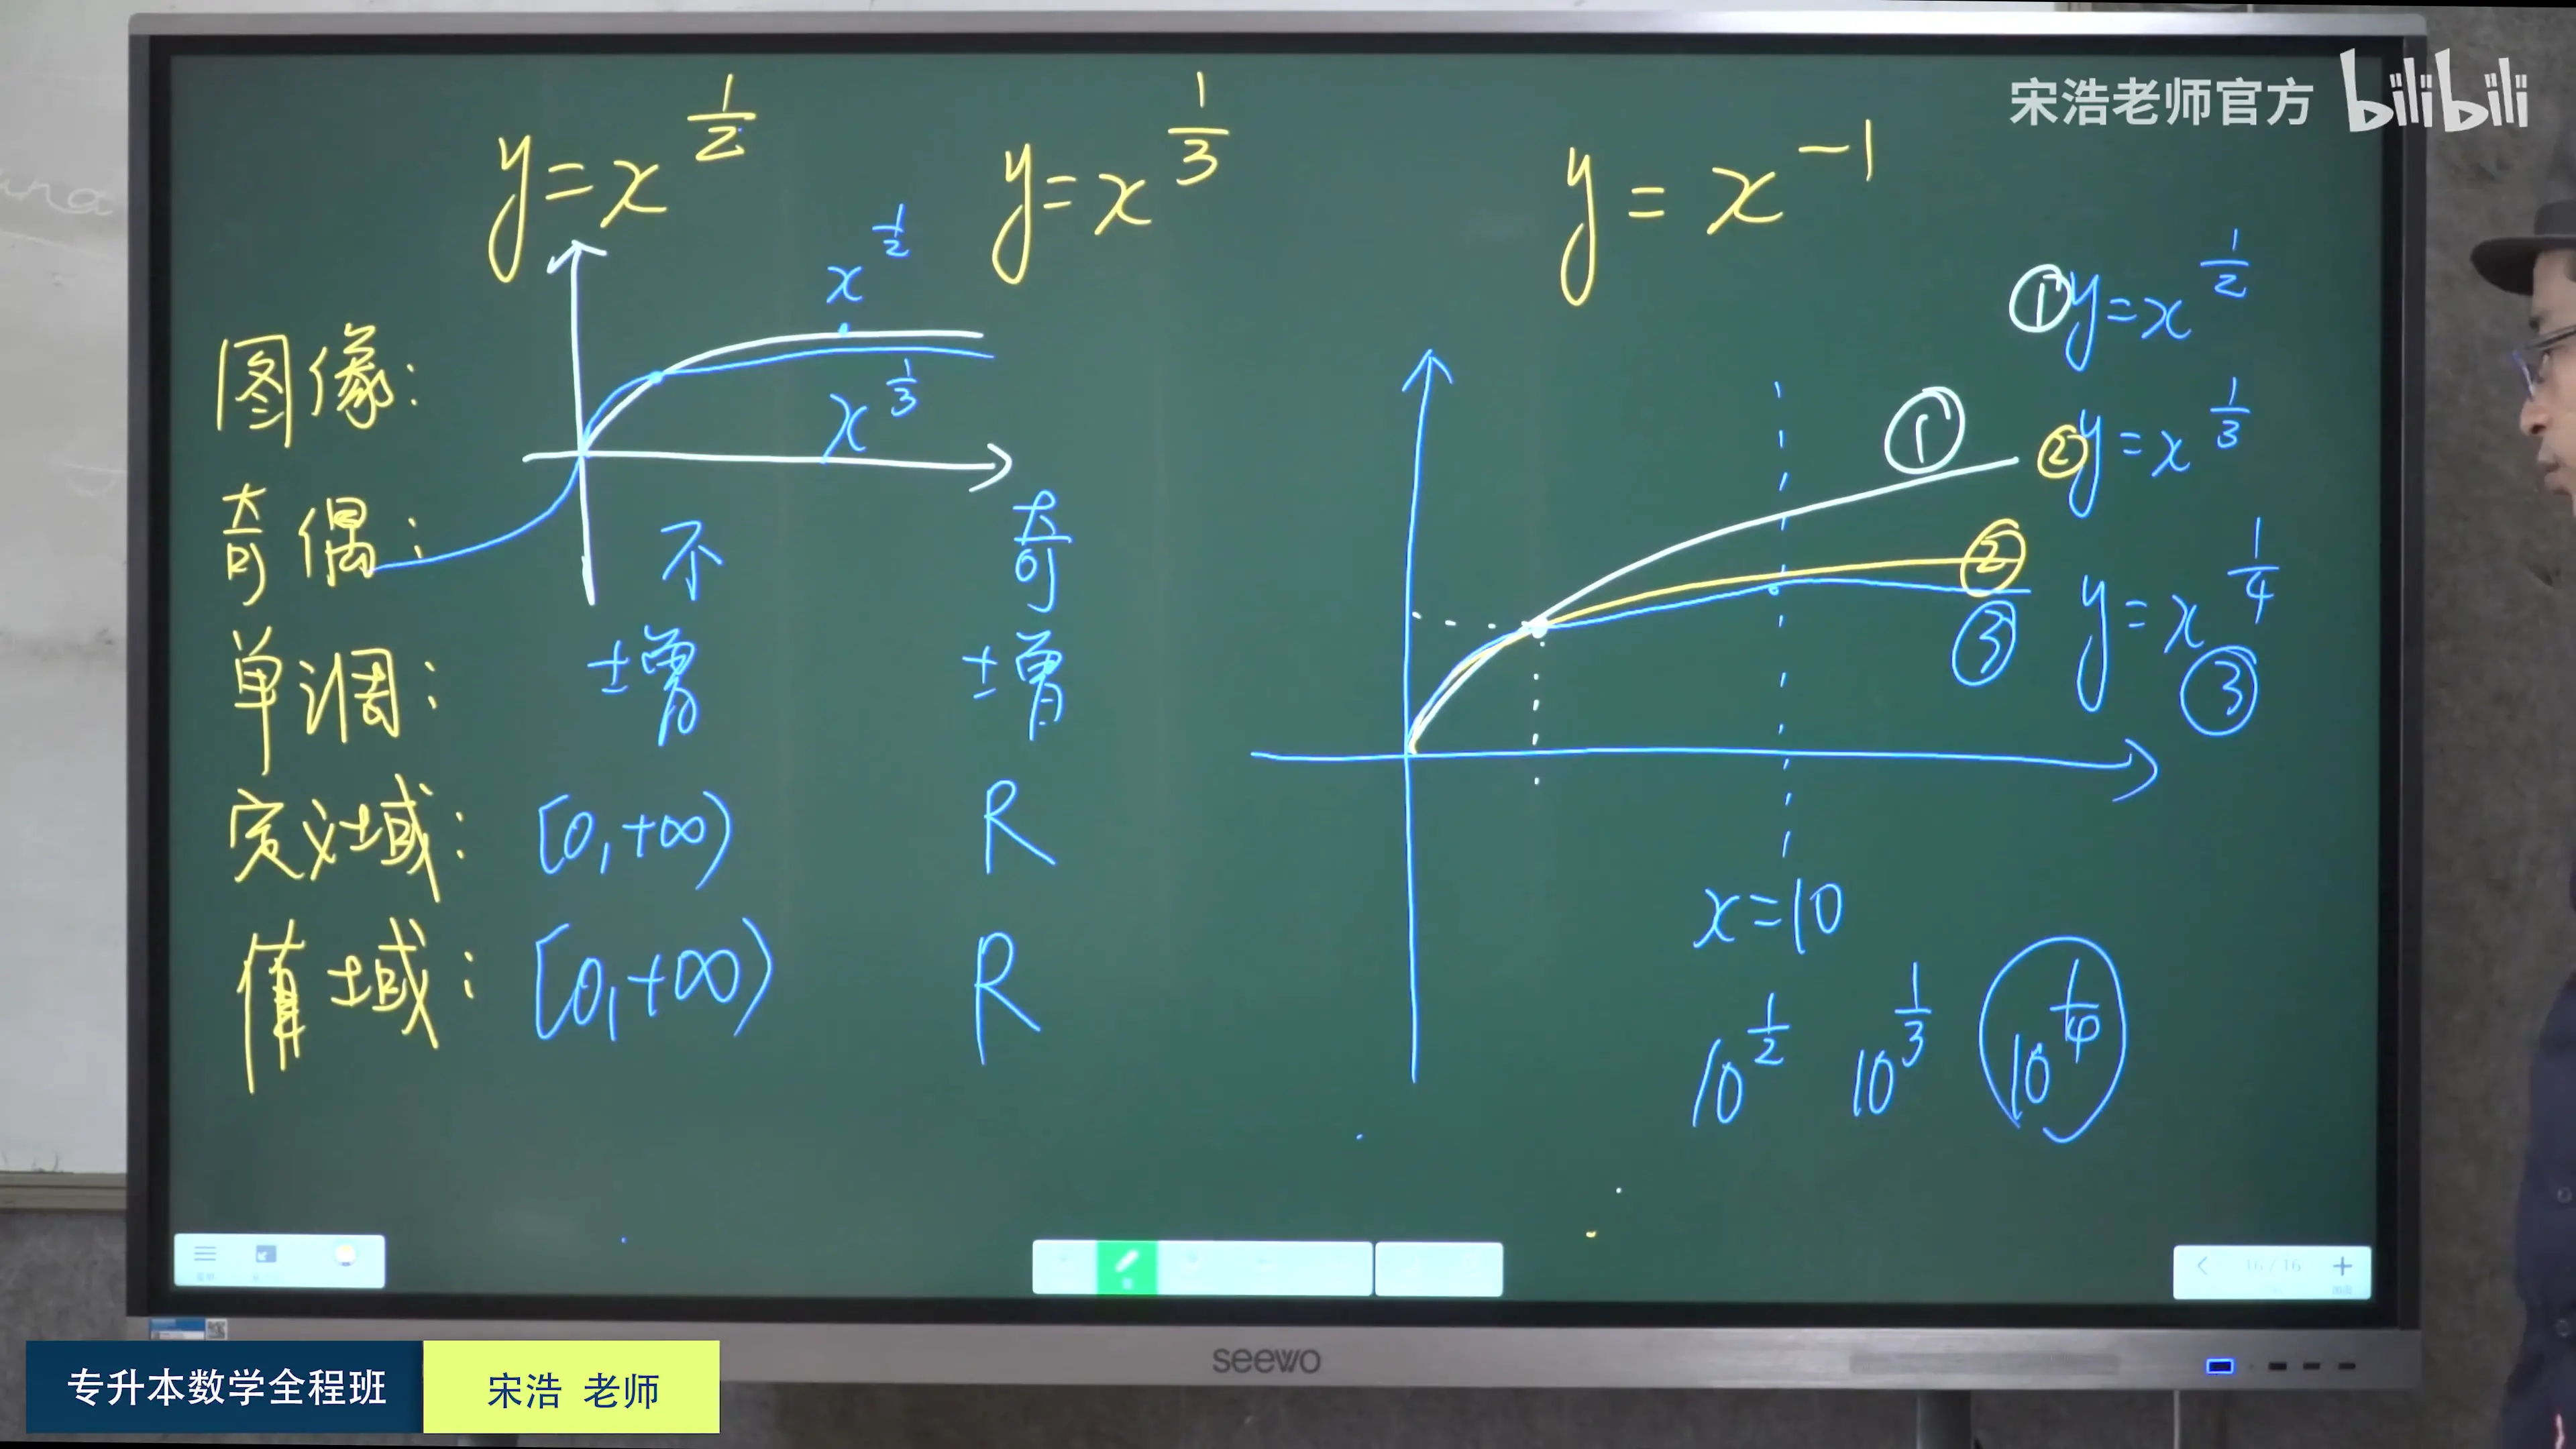 宋浩老师官方 bilibili
y=x^{\frac{1}{2}}
y=x^{\frac{1}{3}}
y=x^{-1}
图像:
x^{\frac{1}{2}}
x^{\frac{1}{3}}
奇偶: 不 奇
单调: 增 增
定义域: [0,+∞) R
值域: [0,+∞) R
① y=x^{\frac{1}{2}}
② y=x^{\frac{1}{3}}
y=x^{\frac{1}{4}} ③
①
②
③
x=10
10^{\frac{1}{2}} 10^{\frac{1}{3}} 10^{\frac{1}{4}}
16/16
seewo
专升本数学全程班 宋浩 老师